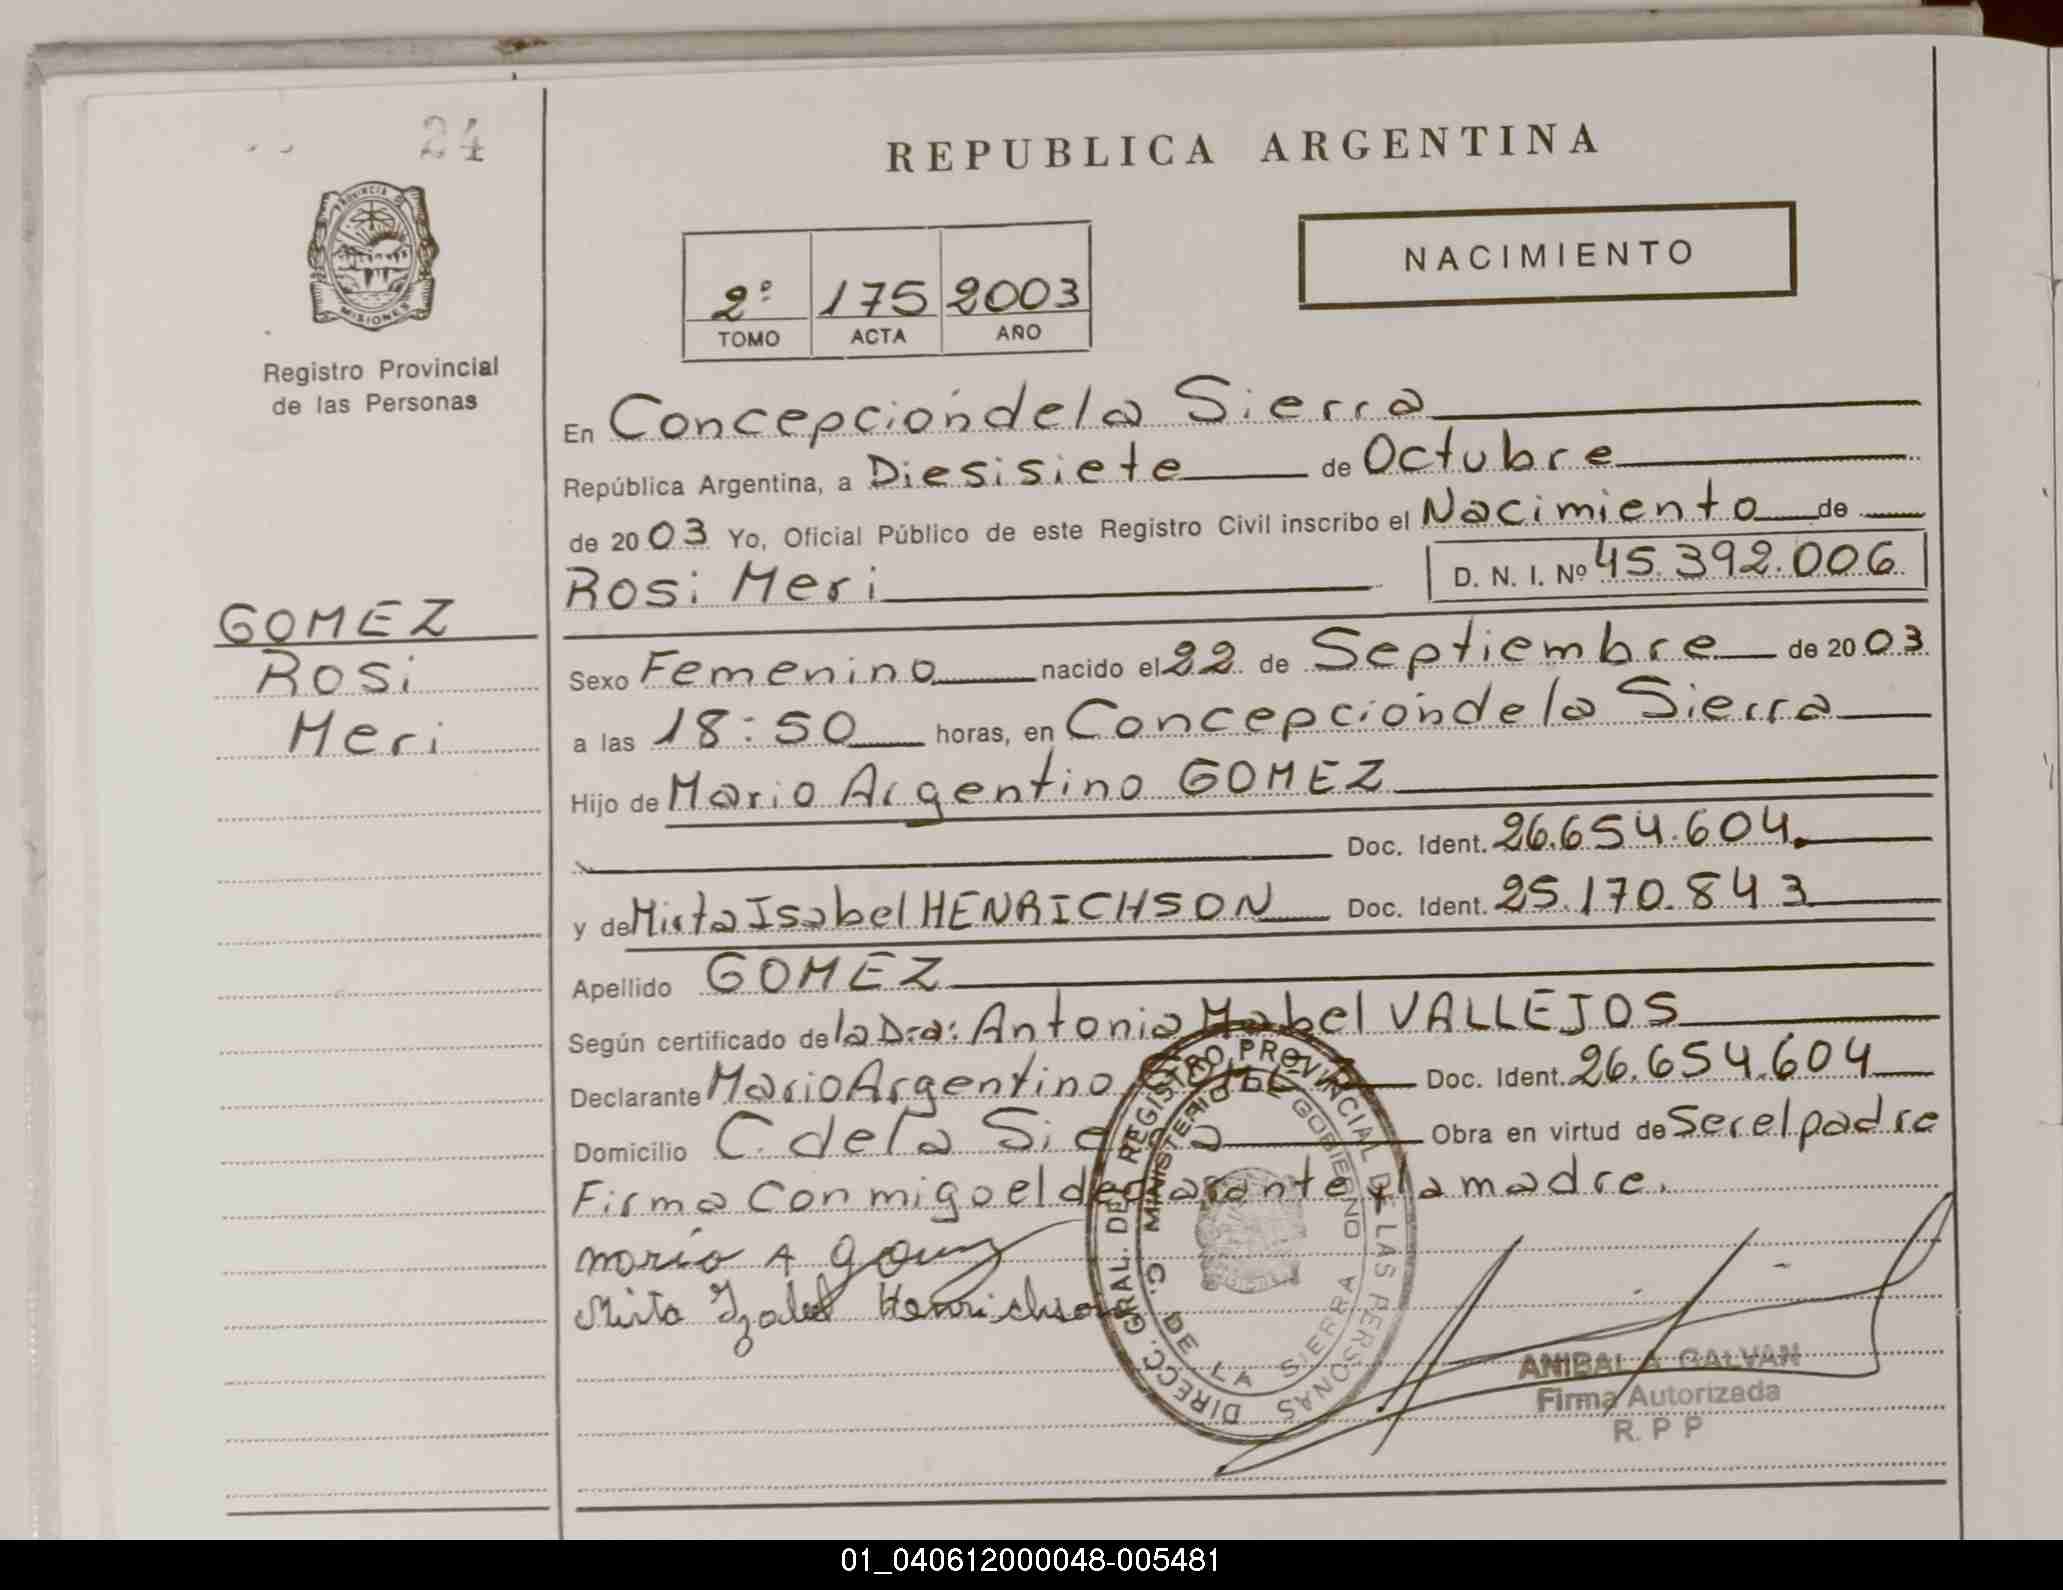 24
PROVINCIA DE
MISIONES
Registro Provincial
de las Personas
GOMEZ
Rosi
Meri
REPUBLICA ARGENTINA
NACIMIENTO
2º 175 2003
TOMO ACTA AÑO
En Concepción de la Sierra
República Argentina, a Diesisiete de Octubre
de 2003 Yo, Oficial Público de este Registro Civil inscribo el Nacimiento de
Rosi Meri D. N. I. Nº 45.392.006
Sexo Femenino nacido el 22 de Septiembre de 2003
a las 18:50 horas, en Concepción de la Sierra
Hijo de Mario Argentino GOMEZ
Doc. Ident. 26.654.604.
y de Mirta Isabel HENRICHSON Doc. Ident. 25.170.843
Apellido GOMEZ
Según certificado de la Dra: Antonia Mabel VALLEJOS
Declarante Mario Argentino GOMEZ Doc. Ident. 26.654.604
Domicilio C. de la Sierra Obra en virtud de Ser el padre
Firma Conmigo el declarante y la madre.
Mario A Gomez
Mirta Yzabel Henrichson
DIRECC. GRAL. DEL REGISTRO PROVINCIAL DE LAS PERSONAS
MINISTERIO DE GOBIERNO
C. DE LA SIERRA
ANIBAL A. GALVAN
Firma Autorizada
R. P P
01_040612000048-005481